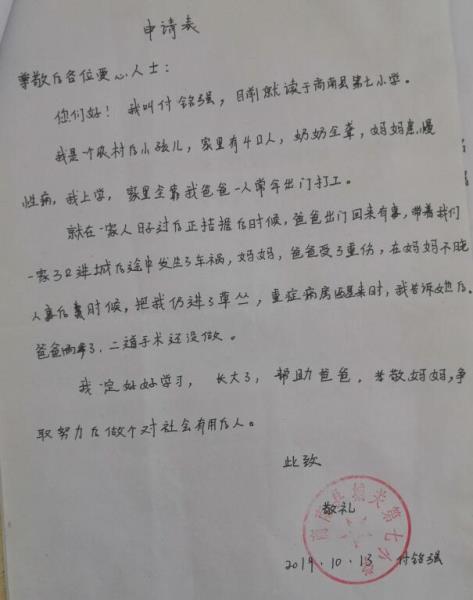 申请表
尊敬后各位爱心人士：
你们好！我叫付铭强，目前就读于商南县第七小学。
我是个农村后小孩儿，家里有4口人，奶奶全聋，妈妈患慢
性病，我上学，家里全靠我爸爸一人常年出门打工。
就在一家人日子过后正拮据后时候，爸爸出门回来有事，带着我们
一家3口进城后途中发生了车祸，妈妈，爸爸受了重伤，在妈妈不晓
人事后时候，把我仍进了草丛，重症病房醒来时，我告诉她后。
爸爸两，二道手术还没做。
我一定好好学习，长大了，帮助爸爸，孝敬妈妈，争
取努力后做个对社会有用后人。
此致
敬礼
商南县城关第七小学
2019.10.13 付铭强